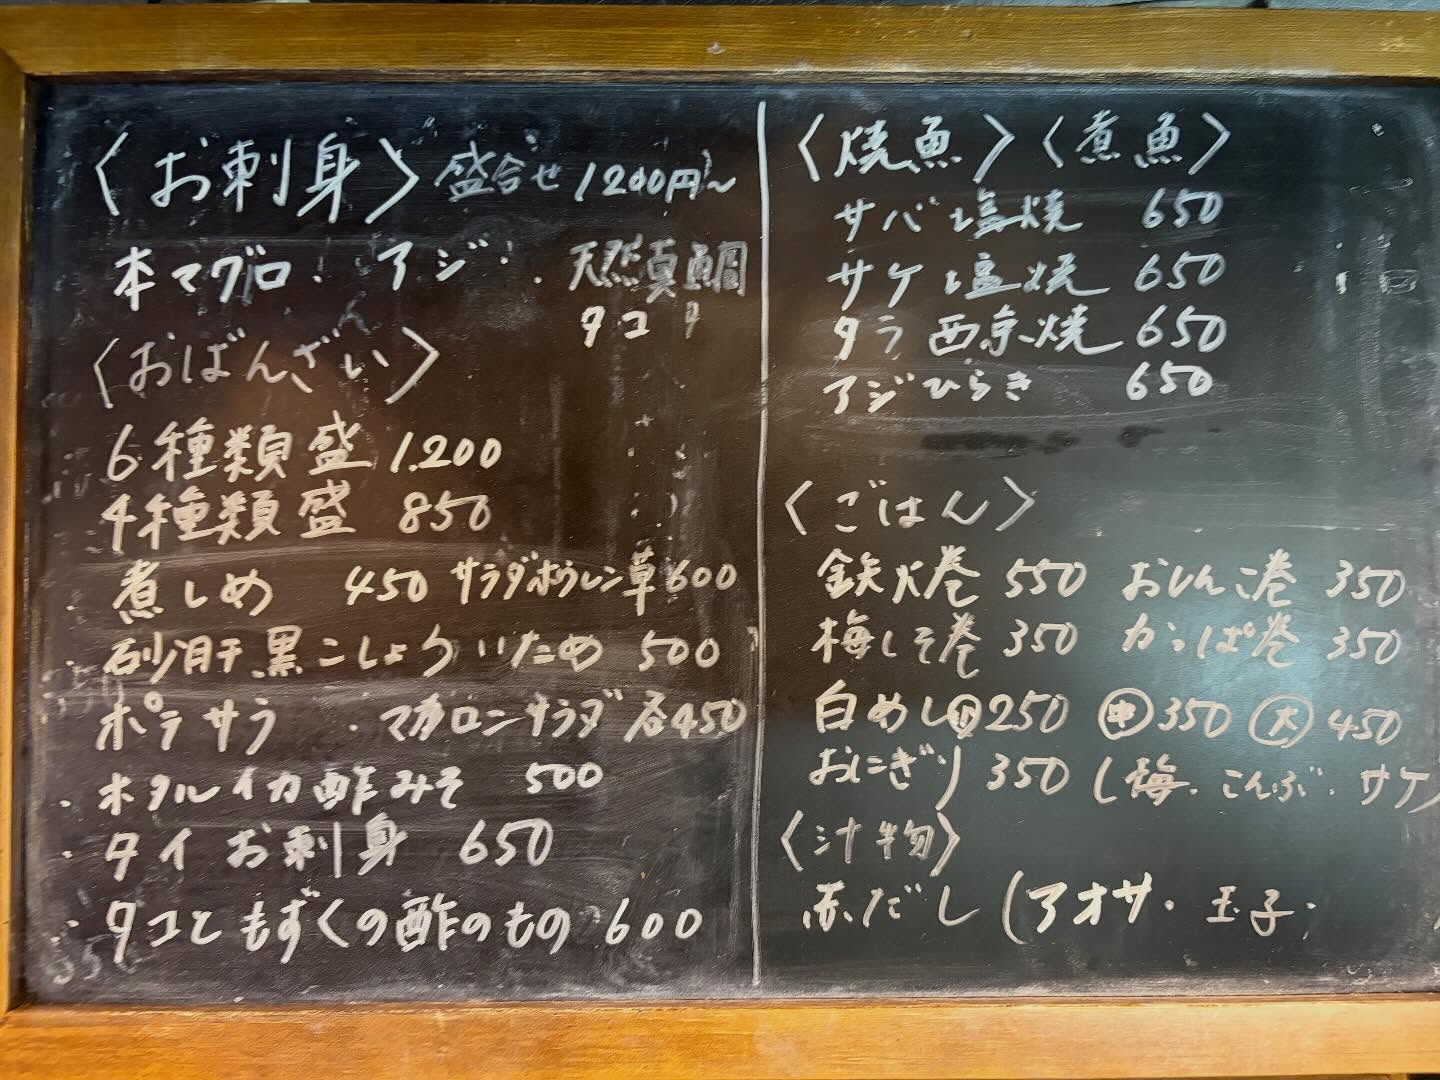 〈お刺身〉盛合せ 1200円〜
本マグロ・アジ・天然真鯛
タコ
〈おばんざい〉
6種類盛 1.200
4種類盛 850
・煮しめ 450 サラダホウレン草 600
・砂肝黒こしょういため 500
・ポテサラ ・マカロンサラダ 各450
・ホタルイカ酢みそ 500
・タイお刺身 650
・タコともずくの酢のもの 600
〈焼魚〉〈煮魚〉
サバ塩焼 650
サケ塩焼 650
タラ西京焼 650
アジひらき 650
〈ごはん〉
鉄火巻 550 おしんこ巻 350
梅しそ巻 350 かっぱ巻 350
白めし小250 中350 大450
おにぎり 350 (梅・こんぶ・サケ)
〈汁物〉
赤だし (アオサ・玉子・